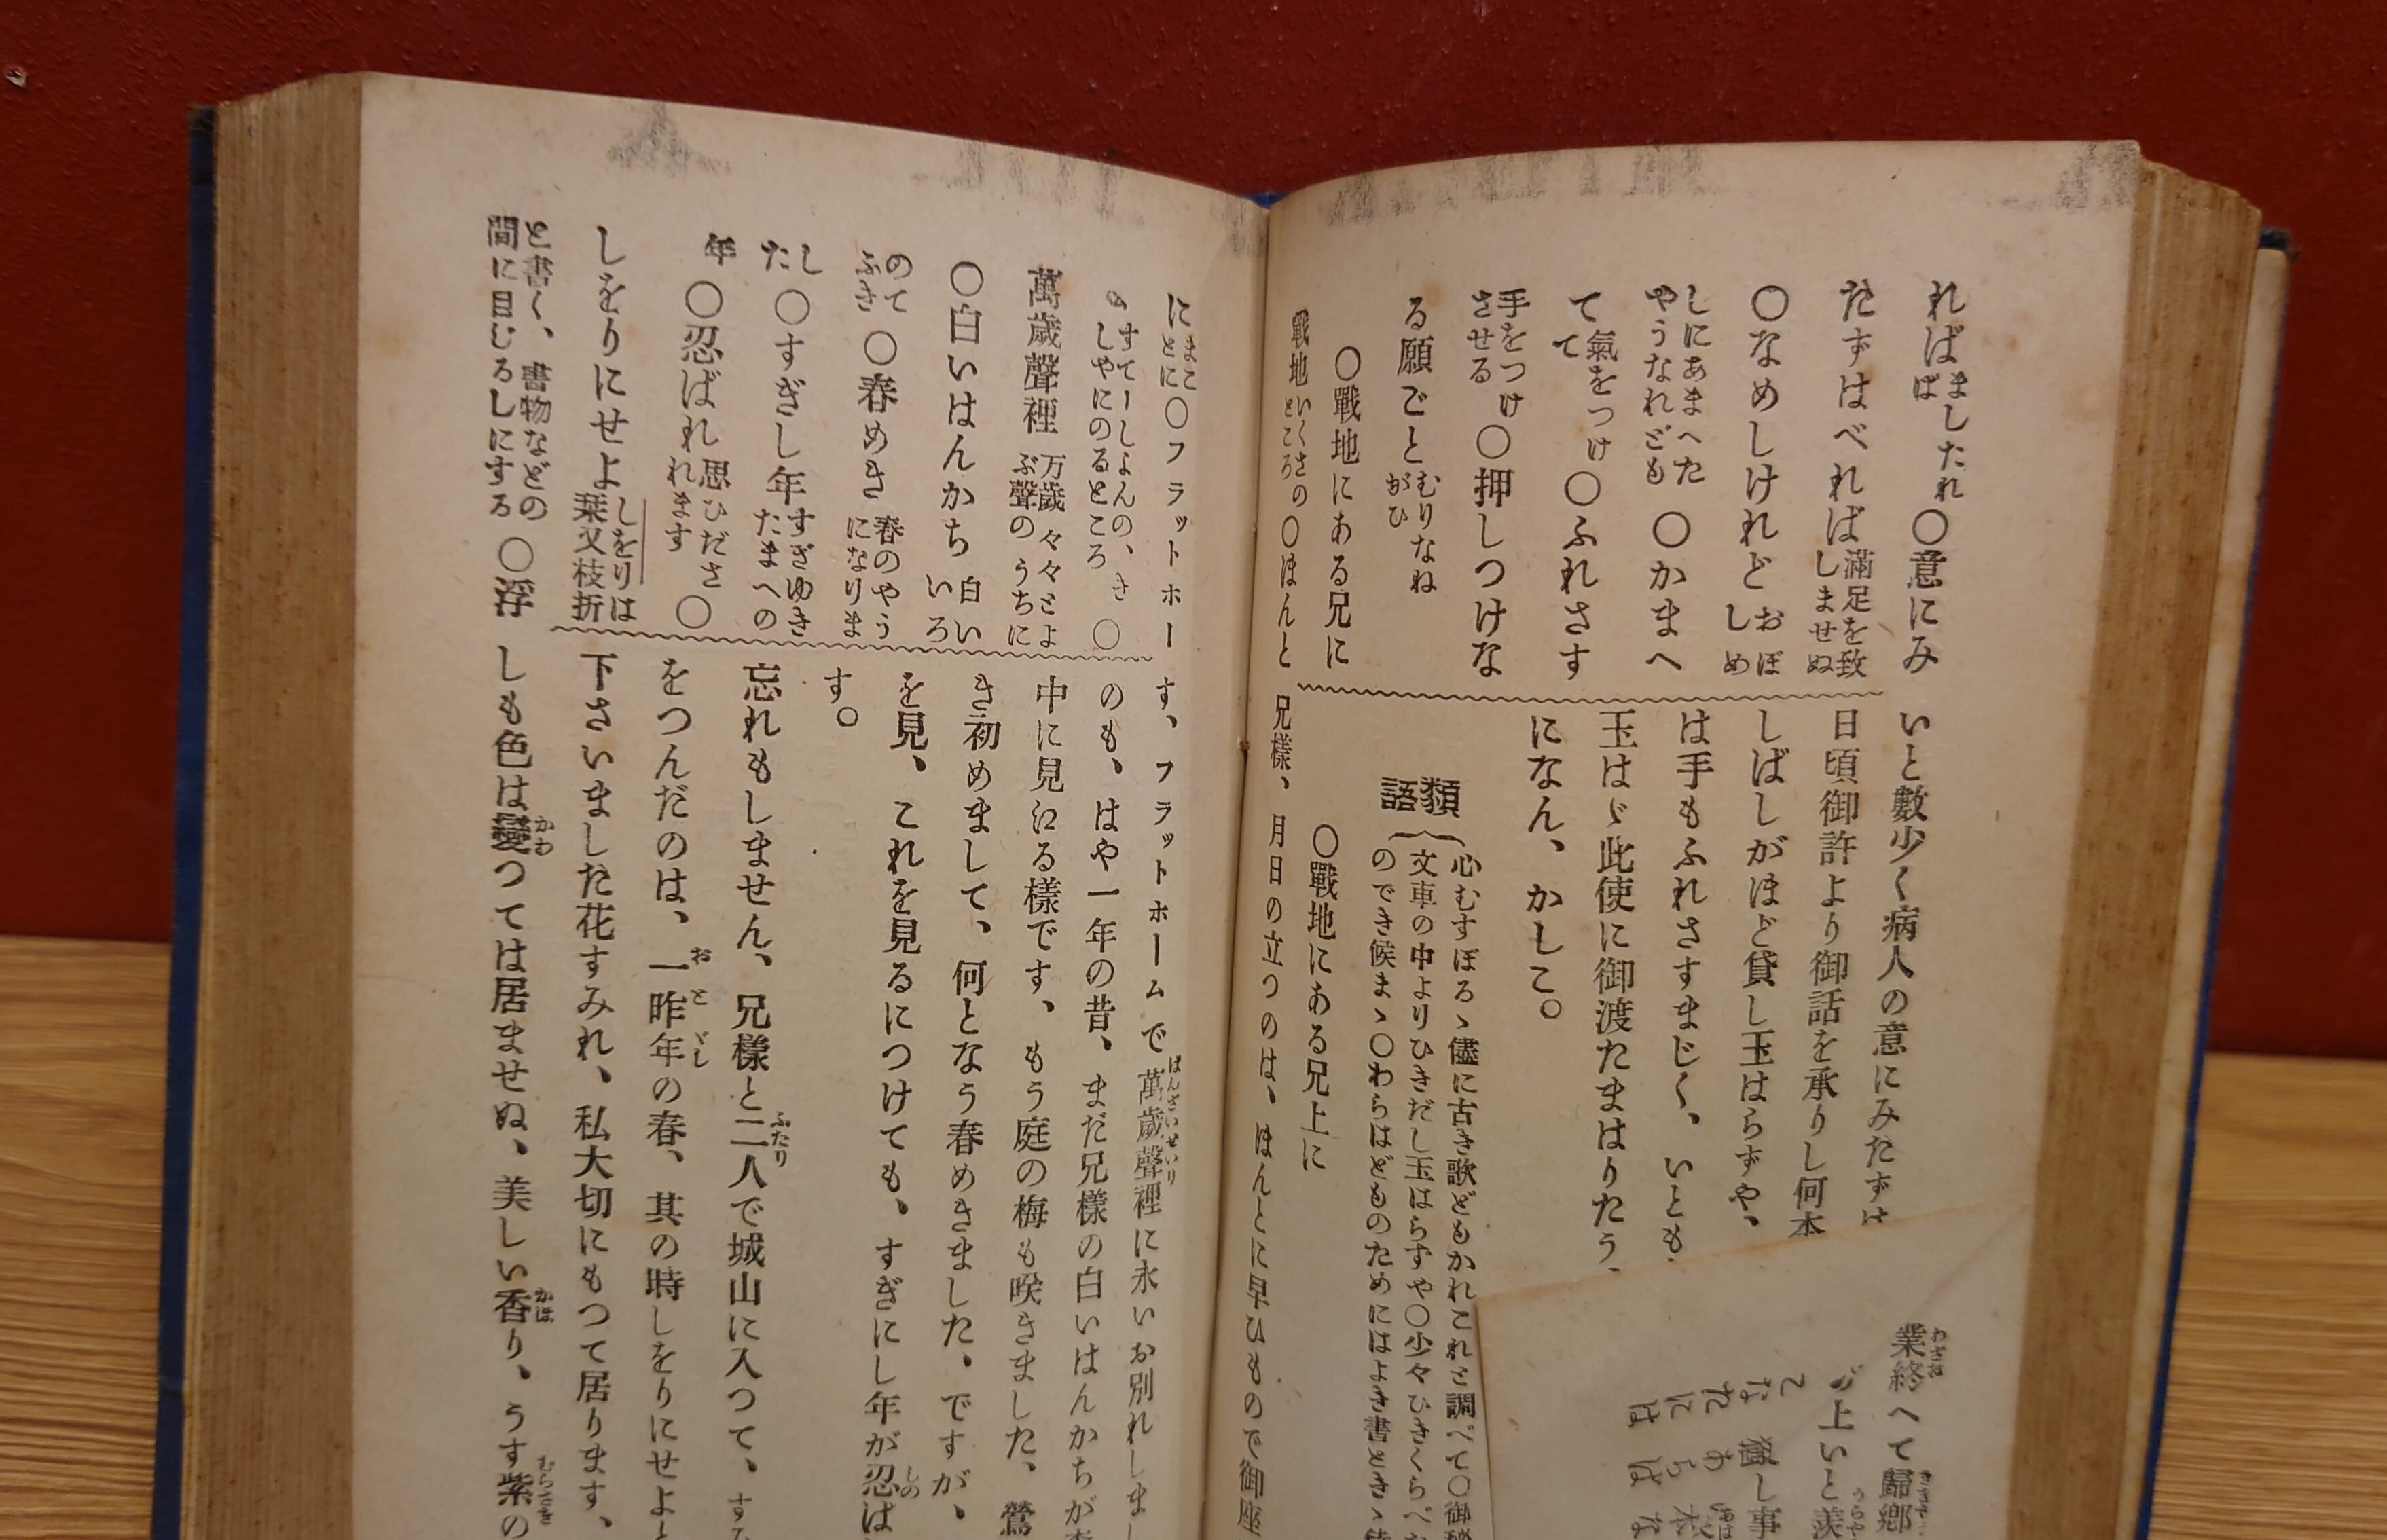 ればましたれば〇意にみ
たずはべれば滿足を致しませぬ
〇なめしけれどおぼしめ
しにあまへたやうなれども〇かまへ
てて氣をつけて〇ふれさす
手をつけさせる〇押しつけな
る願ごとむりなねがひ
〇戰地にある兄に
戰地いくさのところ〇ほんと
いと數少く病人の意にみたずは
日頃御許より御話を承りし何本
しばしがほど貸し玉はらずや、
は手もふれさすまじく、いとも
玉はゞ此使に御渡たまはりたう
になん、かしこ。
類語
心むすぼるゝ儘に古き歌どもかれこれと調べて〇御
文車の中よりひきだし玉はらずや〇少々ひきくらべ
のでき候まゝ〇わらはどものためにはよき書ときゝ
〇戰地にある兄上に
兄樣、月日の立つのは、ほんとに早ひもので御座
業終へて歸鄕
上いと羨
し事
にまことに〇フラットホー
すてーしよんの、きしやにのるところ〇
萬歲聲裡万歲々々とよぶ聲のうちに
〇白いはんかち白いいろ
のてふき〇春めき春のやうになりま
した〇すぎし年すぎゆきたまへの
年〇忍ばれ思ひだされます〇
しをりにせよしをりは栞又枝折
と書く、書物などの間に目じるしにする〇浮
す、フラットホームで萬歲聲裡に永いお別れしまし
のも、はや一年の昔、まだ兄樣の白いはんかちが
中に見江る樣です、もう庭の梅も咲きました、鶯
き初めまして、何となう春めきました、ですが、
を見、これを見るにつけても、すぎにし年が忍ば
す。
忘れもしません、兄樣と二人で城山に入つて、す
をつんだのは、一昨年の春、其の時しをりにせよと
下さいました花すみれ、私大切にもつて居ります、
しも色は變つては居ませぬ、美しい香り、うす紫の